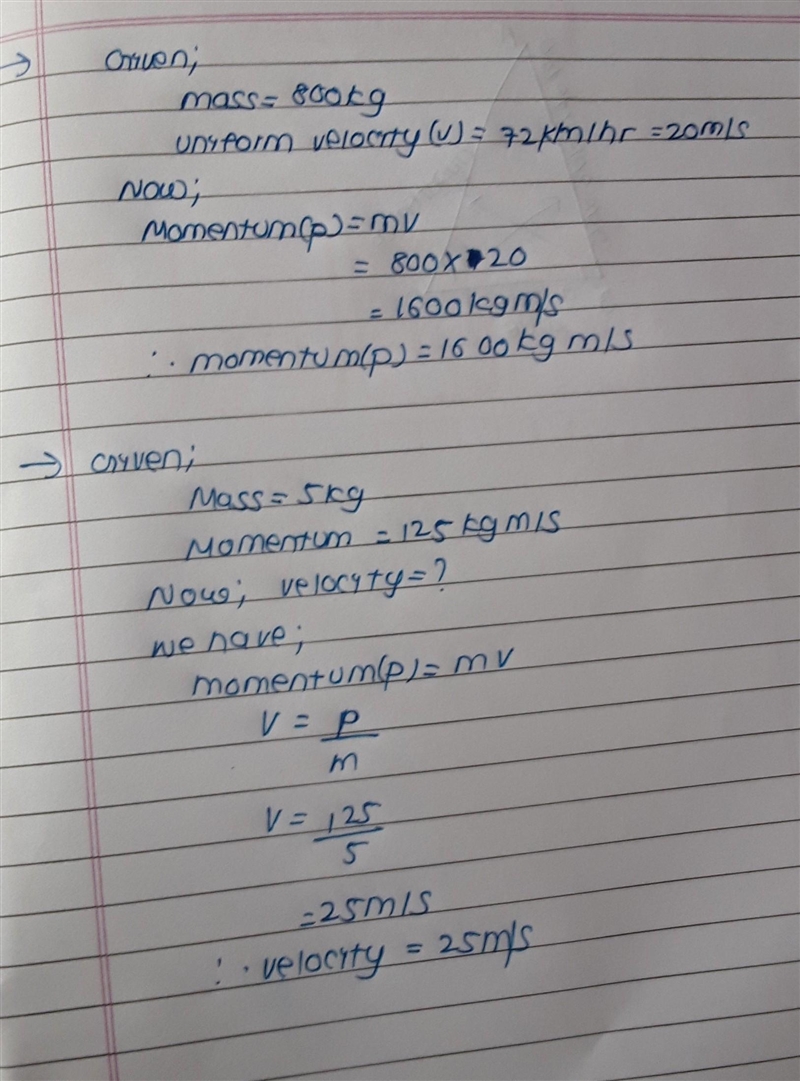 → Given;
mass = 800kg
Uniform velocity (v) = 72km/hr = 20m/s
Now;
Momentum(p) = mv
= 800 x 20
= 1600 kg m/s
∴ momentum(p) = 1600 kg m/s
→ Given;
Mass = 5kg
Momentum = 125 kg m/s
Now; velocity = ?
we have;
momentum(p) = mv
V = p
m
V = 125
5
= 25m/s
∴ velocity = 25m/s